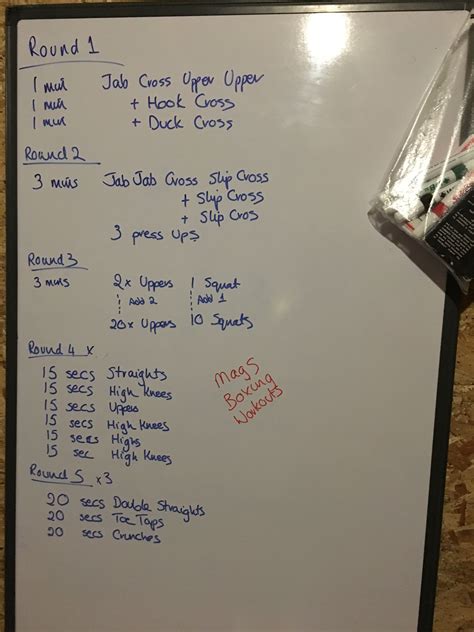 Round 1
1 min Jab Cross Upper Upper
1 min + Hook Cross
1 min + Duck Cross
Round 2
3 mins Jab Jab Cross Slip Cross
+ Slip Cross
+ Slip Cros
3 press ups
Round 3
3 mins 2x Uppers 1 Squat
Add 2 Add 1
20x Uppers 10 Squats
Round 4 x
15 secs Straights
15 secs High Knees
15 secs Uppers
15 secs High Knees
15 secs Highs
15 sec High Knees
Mags
Boxing
Workouts
Round 5 x3
20 secs Double Straights
20 secs Toe Taps
20 secs Crunches